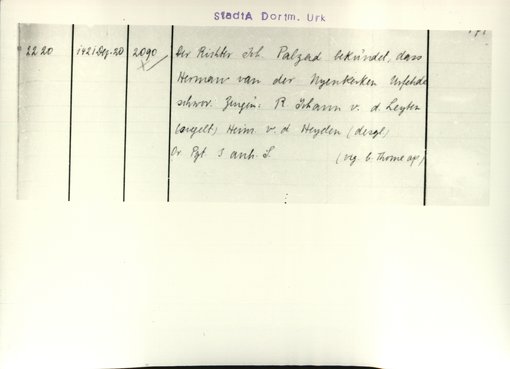 StadtA Dortm. Urk
2220 1421 Dez. 20 2090 Der Richter Joh. Palzad bekundet, dass
Herman van der Nyenkerken Urfehde
schwor. Zeugen: R. Johann v. d. Leyten
(siegelt) Heinr. v. d. Heyden (desgl.)
Or. Pgt. 3 anh. S. (vig. b. Thome ap)